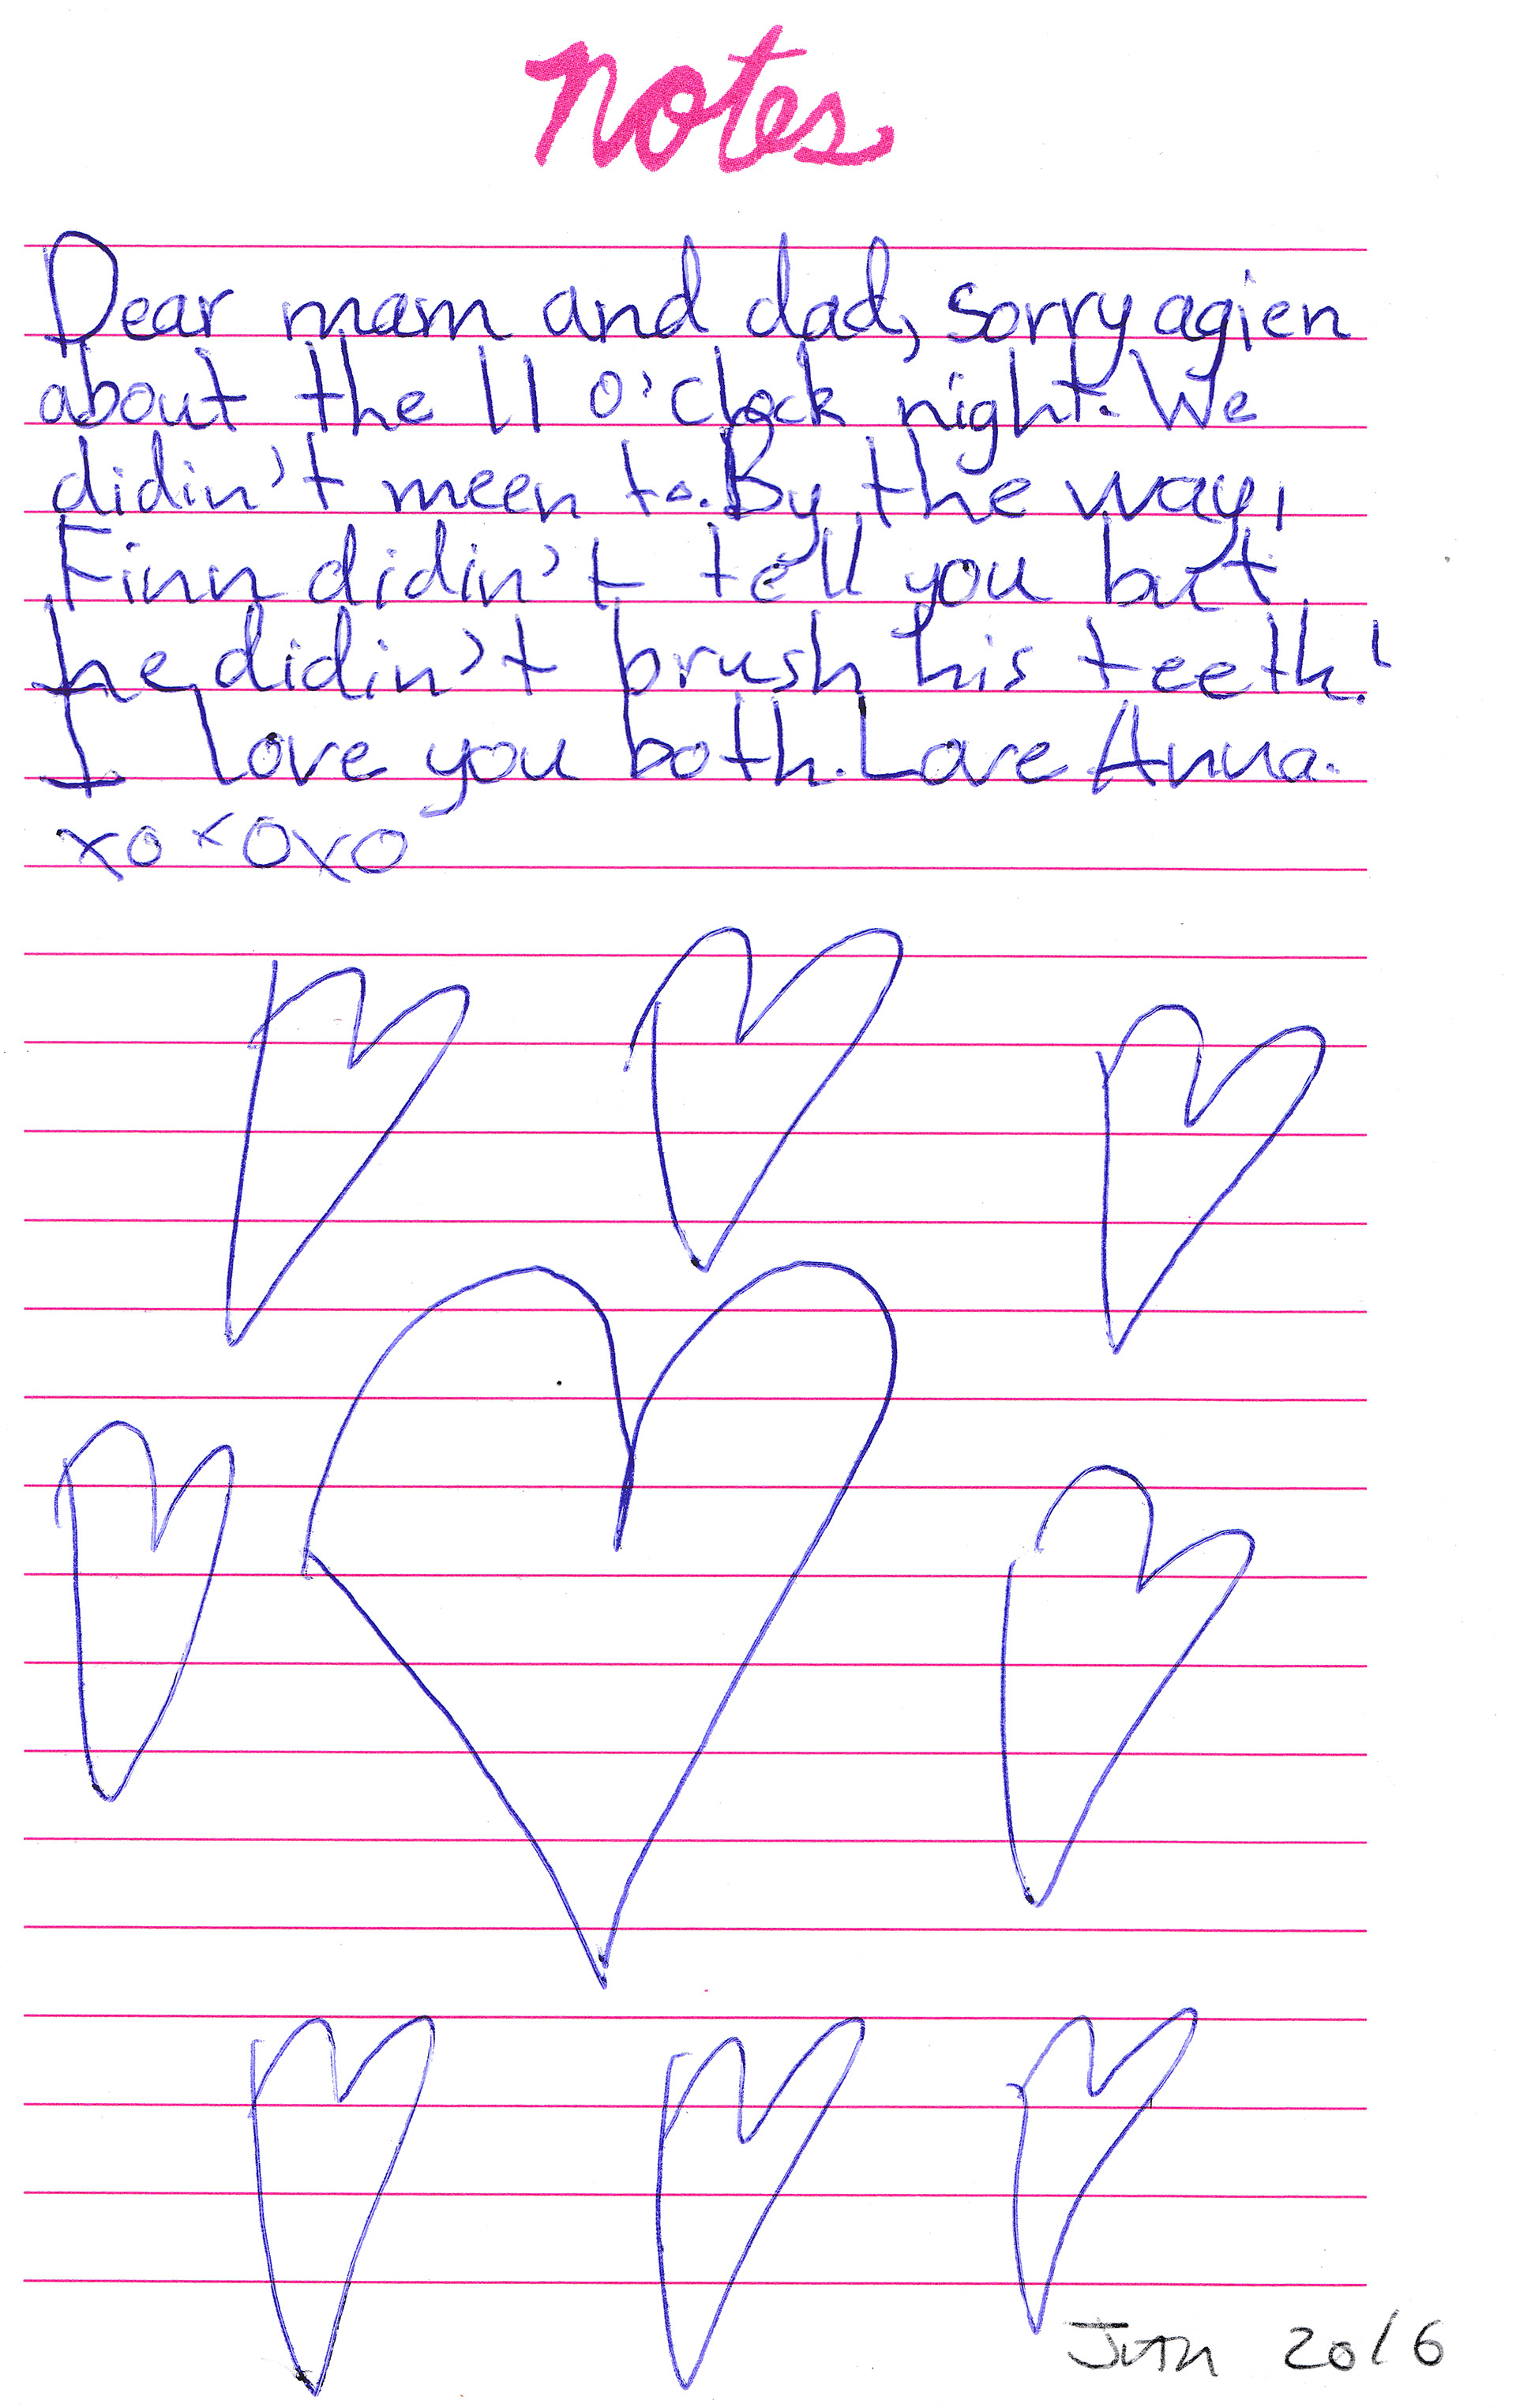 notes
Dear mam and dad, sorry agien
about the 11 o'clock night. We
didin't meen to. By the way,
Finn didin't tell you but
he didin't brush his teeth!
I love you both. Love Anna.
xoxoxo
2016